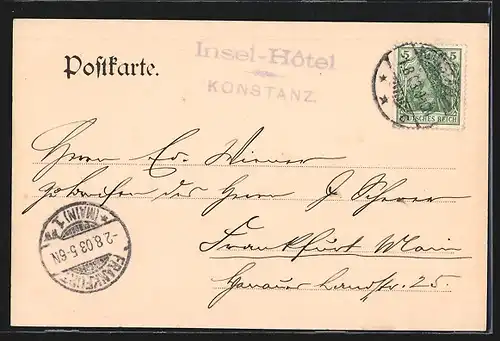 Insel-Hôtel
KONSTANZ.
Postkarte.
5 5
DEUTSCHES REICH
Herrn Ed. Wiener
des Herrn J Scherer
Frankfurt Main
Hanauer Landstr. 25.
FRANKFURT (MAIN) 1
-2.8.03.5-6N